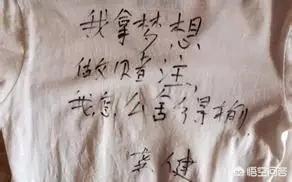 我拿梦想
做赌注
我怎么舍得输
健
悟空问答